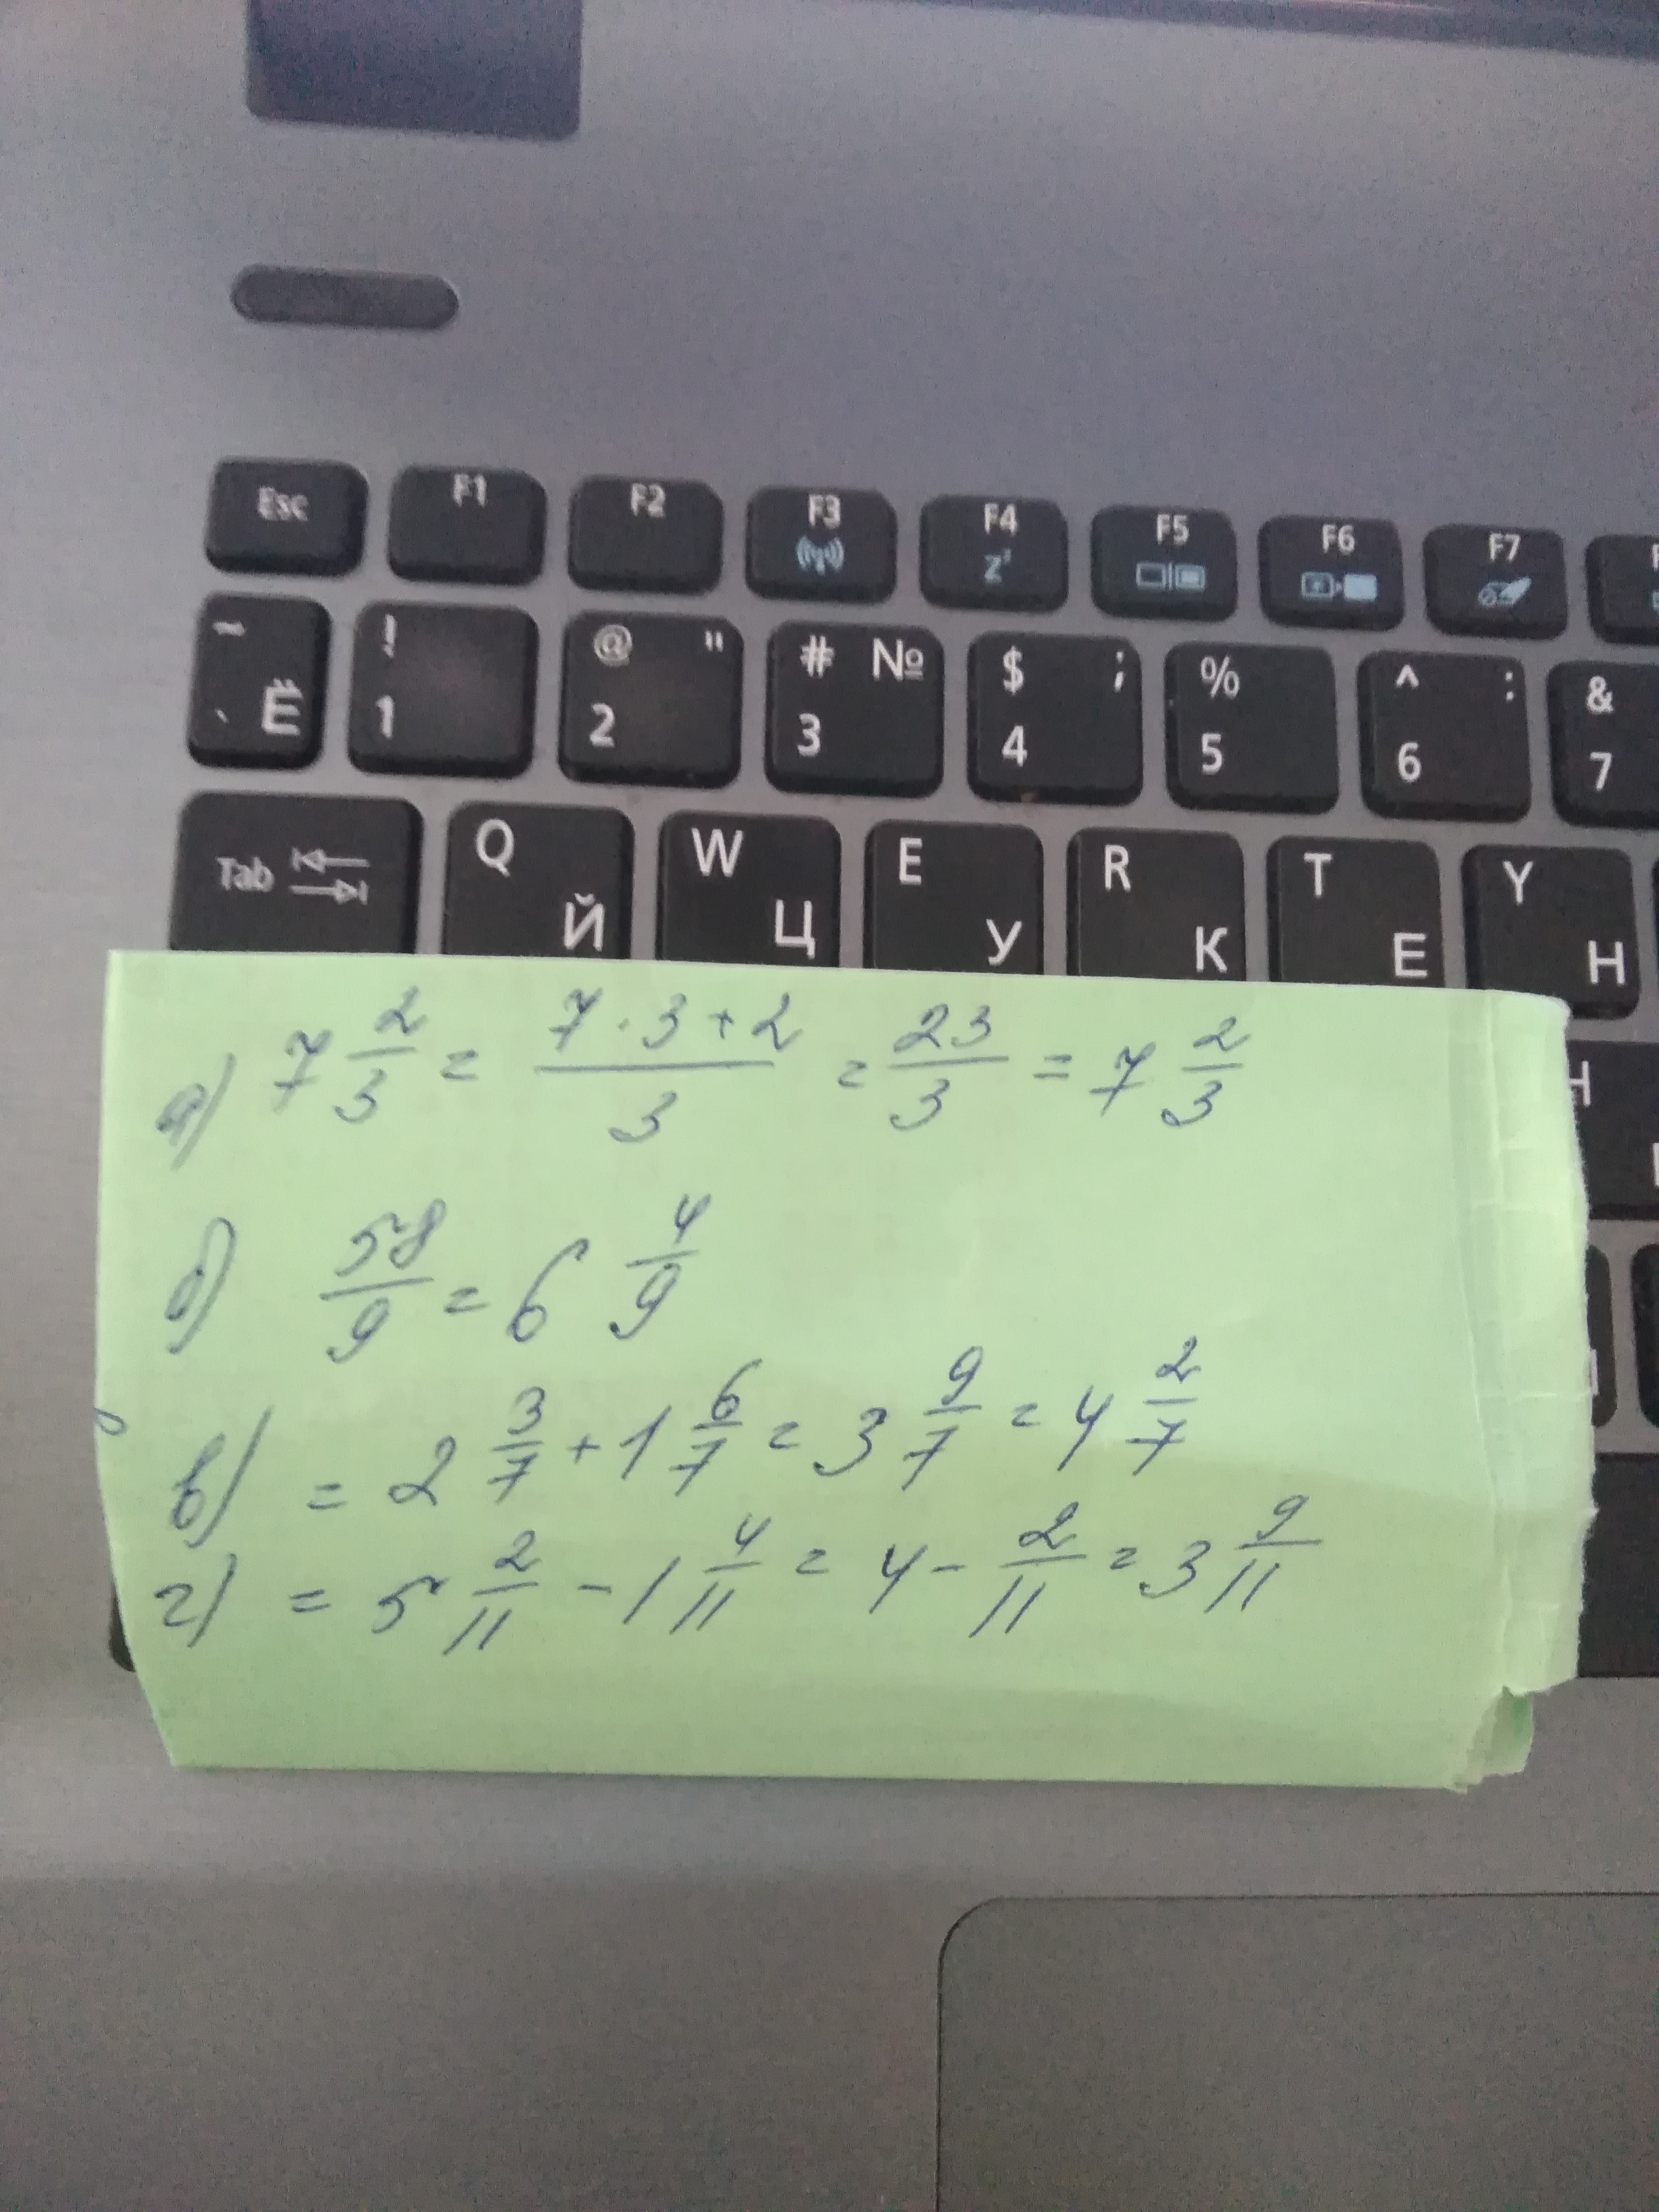 Esc F1 F2 F3 F4 Zz F5 F6 F7
~ ` Ё ! 1 @ " 2 # № 3 $ ; 4 % 5 ^ : 6 & 7
Tab Q Й W Ц E У R К T Е Y Н
а) 7 2/3 = (7·3+2)/3 = 23/3 = 7 2/3
б) 58/9 = 6 4/9
в) = 2 3/7 + 1 6/7 = 3 9/7 = 4 2/7
г) = 5 2/11 - 1 4/11 = 4 - 2/11 = 3 9/11